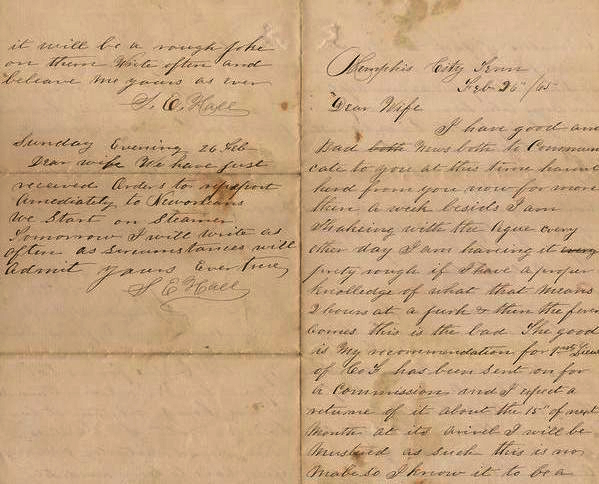 it will be a rough joke
on them Write often and
beleave me yours as ever
S. E. Hall
Sunday Evening 26 Feb
Dear wife We have just
received Orders to report
Amediatety to Neworleans
We Start on Steamer
Tomorrow I will write as
often as sircumstances will
admit yours Ever true
S E Hall
Memphis City Tenn
Feb 26th /65
Dear Wife
I have good and
Bad both News both to Commun
cate to you at this time havnt
herd from you now for more
then a week besids I am
Shakeing with the Ague evry
other day I am haveing it every
prety rough if I have a proper
knolledge of what that means
2 hours at a jirk & then the fever
Comes this is the bad The good
is My recommendation for 1st Lieut
of Co I has been sent on for
a Commission and I expect a
returne of it about the 15th of next
Month at its arivel I will be
Mustered as such this is no
Mabeso I know it to be a